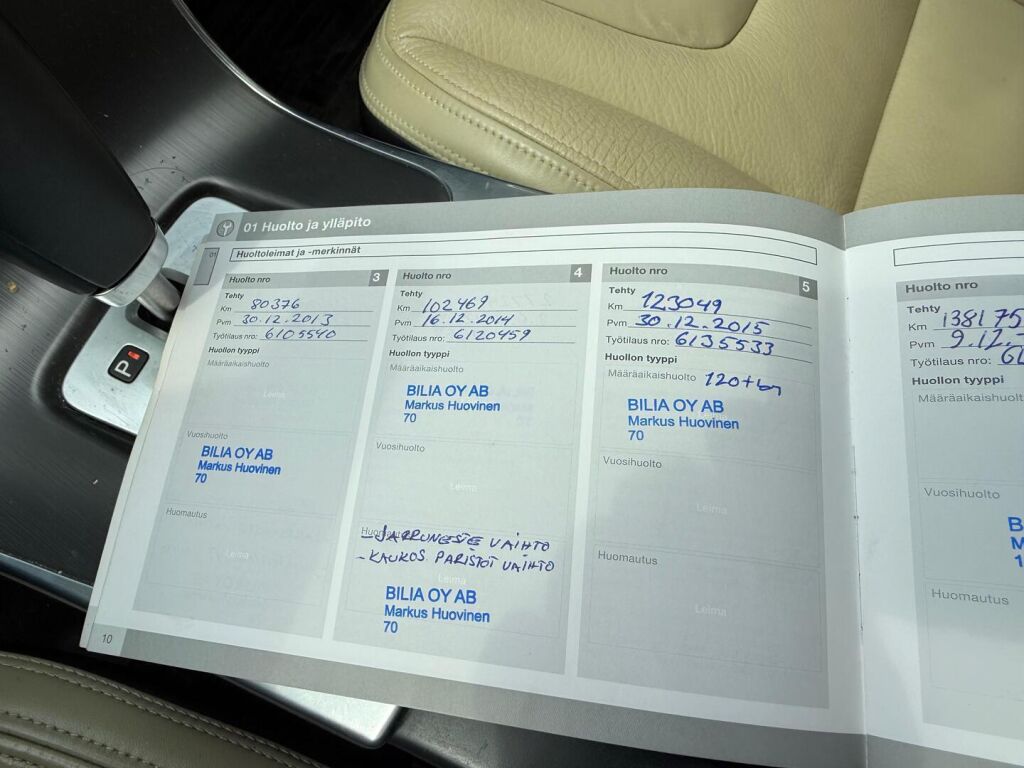 01 Huolto ja ylläpito
01
Huoltoleimat ja -merkinnät
Huolto nro 3
Tehty
Km 80376
Pvm 30.12.2013
Työtilaus nro: 6105540
Huollon tyyppi
Määräaikaishuolto
Leima
Vuosihuolto
BILIA OY AB
Markus Huovinen
70
Huomautus
Leima
Huolto nro 4
Tehty
Km 102469
Pvm 16.12.2014
Työtilaus nro: 6120459
Huollon tyyppi
Määräaikaishuolto
BILIA OY AB
Markus Huovinen
70
Vuosihuolto
Leima
Huomautus
- JARRUNESTE VAIHTO
- KAUKOS. PARISTOT VAIHTO
Leima
BILIA OY AB
Markus Huovinen
70
Huolto nro 5
Tehty
Km 123049
Pvm 30.12.2015
Työtilaus nro: 6135533
Huollon tyyppi
Määräaikaishuolto 120+km
BILIA OY AB
Markus Huovinen
70
Vuosihuolto
Leima
Huomautus
Leima
10
Huolto nro
Tehty
Km 138175
Pvm 9.12.
Työtilaus nro:
Huollon tyyppi
Määräaikaishuolto
Vuosihuolto
Huomautus
P